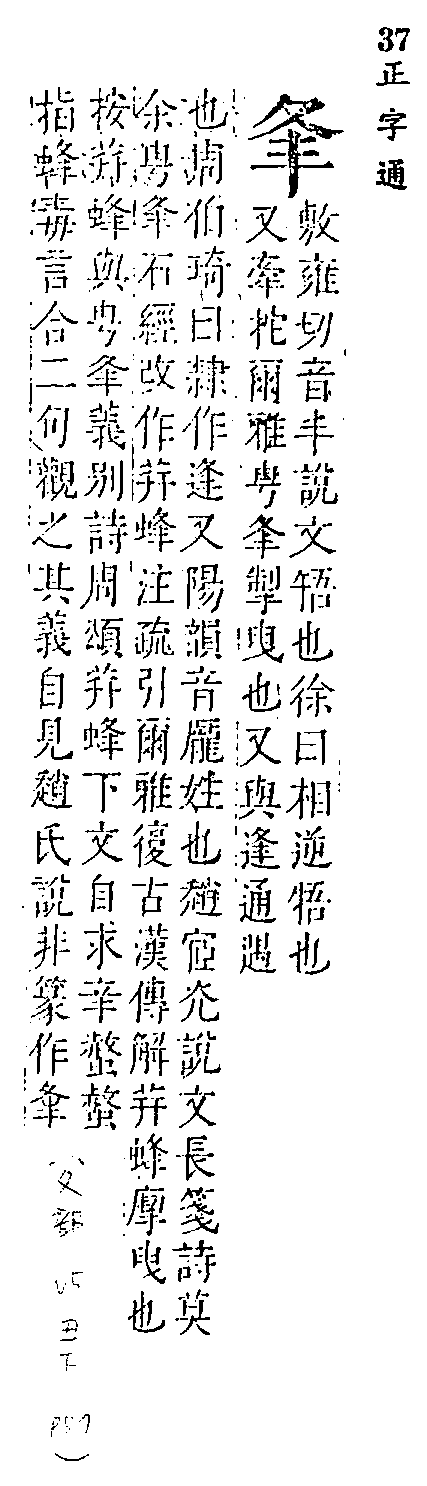 37 正字通
夆
敷雍切音丰說文啎也徐曰相逆牾也
又牽挓爾雅甹夆掣曳也又與逢通遇
也周伯琦曰隸作逢又陽韻音龐姓也趙宧光說文長箋詩莫
余甹夆石經改作荓蜂注疏引爾雅復古漢傳解荓蜂㢓曳也
按荓蜂與甹夆義别詩周頌荓蜂下文自求辛螫螫
指蜂毒言合二句觀之其義自見趙氏說非篆作夆
(夊部 丑下 P57)